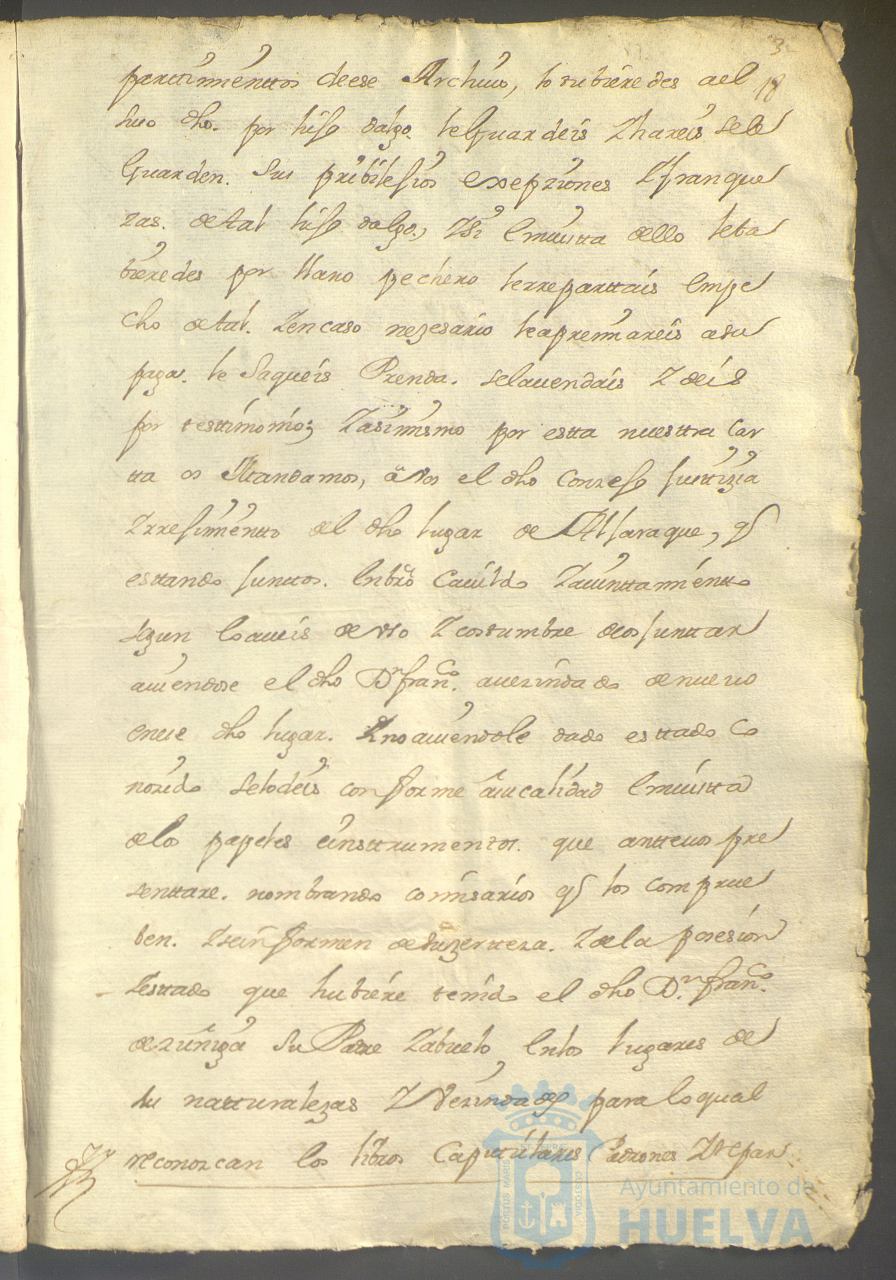 3
18
partimenttos deese Archivo, lo tubieredes ael
suo dho. por hijo dalgo. leguardeis Zhareis sele
Guarden. Sus pribilesios exepziones Zfranque
zas. detal hijo dalgo, Zsi Envista dello leba
bieredes por llano pechero lerreparttais Enpe
cho detal. Zencaso nezesario leapremiareis asu
paga. le Saqueis Prenda. selavendais Z deis
por testtimonio; Zasimismo por estta nuesttra Car
tta os Mandamos, â vos el dho Conzejo Justtizia
Zrrejimientto del dho lugar de Alljaraque, q
esttando Junttos. En bro Cavildo Zaiunttamientto
segun loaveis de uso Z costumbre deos Junttar
aviendose el dho Dn franco. avezindado de nuevo
enese dho lugar. Zno aviendole dado esttado Co
nozido selodeis conforme âsu calidad Envistta
delos papeles einsttrumentos. que antteuos pre
senttare. nombrando comisarios q los comprue
ben. Zseinformen desuzerteza. Zdela posesion
Zesttado que hubiere tenido el dho Dn. franco.
dezuñiga Su Padre Zabuelo Enlos lugares de
su natturalezas Z Vezindades para loqual
reconozcan los libros Capitulares Padrones Zrepar
Ayuntamiento de
HUELVA